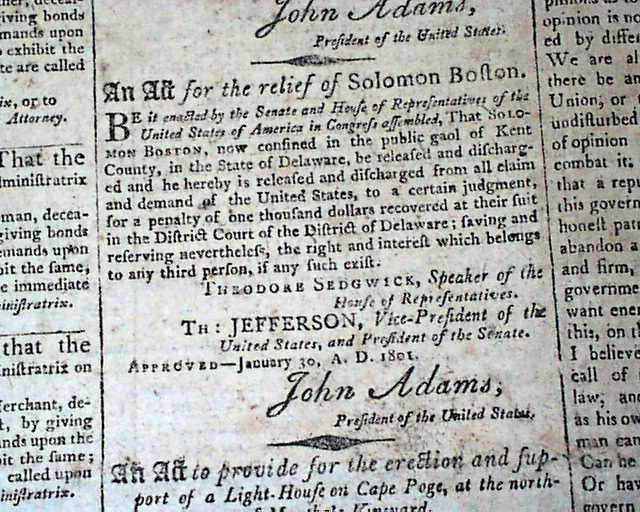 ther, decea-
giving bonds
mands upon
to exhibit the
te are called
ix, or to
Attorney.
That the
lministratrix
man, decea-
giving bonds
emands upon
bit the same,
e immediate
inistratrix.
that the
inistratrix on
Merchant, de-
t, by giving
ands upon the
bit the same;
called upon
inistratrix.
John Adams,
President of the United States.
An Act for the relief of Solomon Boston.
BE it enacted by the Senate and House of Representatives of the
United States of America in Congress assembled, That SOLO-
MON BOSTON, now confined in the public gaol of Kent
County, in the State of Delaware, be released and discharg-
ed and he hereby is released and discharged from all claim
and demand of the United States, to a certain judgment,
for a penalty of one thousand dollars recovered at their suit
in the District Court of the District of Delaware; saving and
reserving nevertheless, the right and interest which belongs
to any third person, if any such exist.
THEODORE SEDGWICK, Speaker of the
House of Representatives.
TH: JEFFERSON, Vice-President of the
United States, and President of the Senate.
APPROVED—January 30, A. D. 1801.
John Adams,
President of the United States.
An Act to provide for the erection and sup-
port of a Light-House on Cape Poge, at the north-
opinion is no
ed by differ
We are al
there be an
Union, or
undisturbed
of opinion
combat it:
that a rep
this govern
honest pat
abandon a
and firm,
governme
want ener
this, on th
I believe
call of
law, and
as his ow
man can
Can he
Or hav
govern